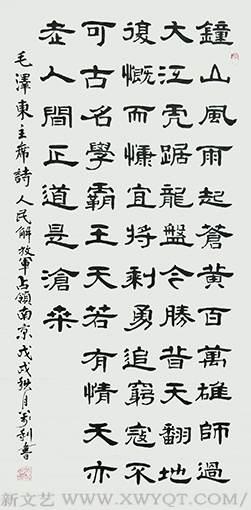 鐘山風雨起蒼黄百萬雄師過
大江虎踞龍盤今勝昔天翻地
復慨而慷宜將剩勇追窮寇不
可古名學霸王天若有情天亦
老人間正道是滄桑
毛澤東主席詩 人民解放軍占領南京 戊戌秋月
新文艺/WWW.XWYQT.COM/